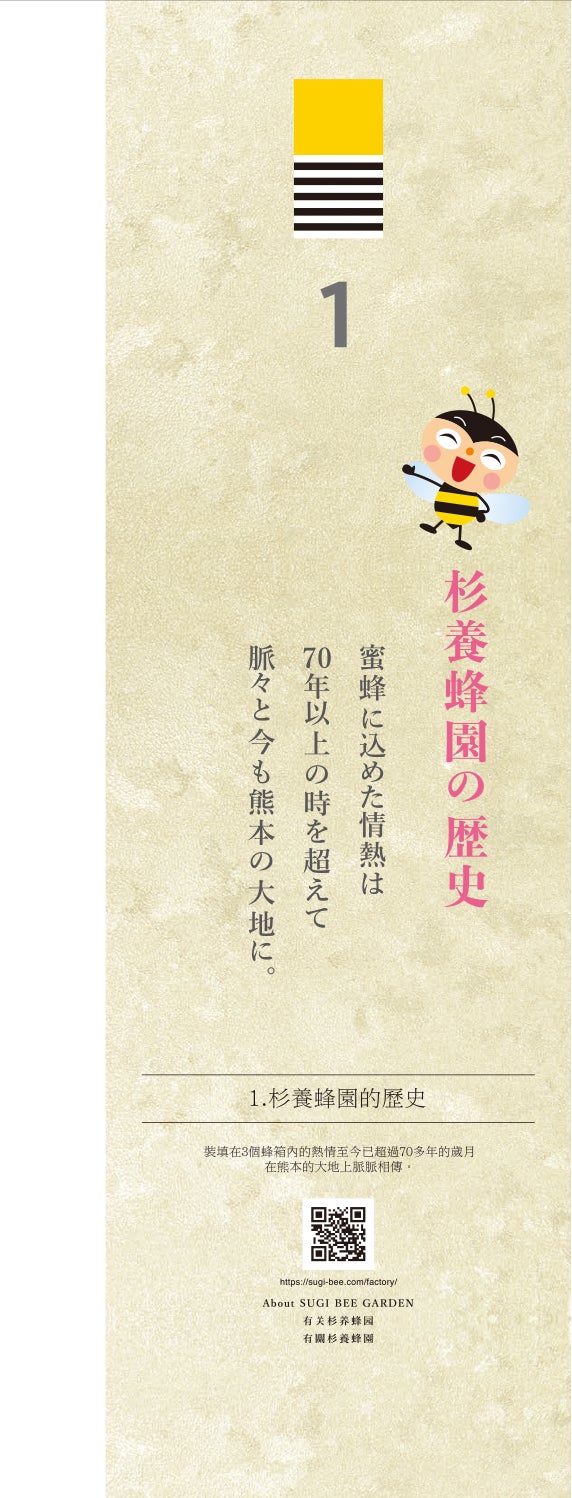 1
杉養蜂園の歴史
蜜蜂に込めた情熱は
70年以上の時を超えて
脈々と今も熊本の大地に。
1.杉養蜂園的歷史
裝填在3個蜂箱內的熱情至今已超過70多年的歲月
在熊本的大地上脈脈相傳。
https://sugi-bee.com/factory/
About SUGI BEE GARDEN
有关杉养蜂园
有關杉養蜂園